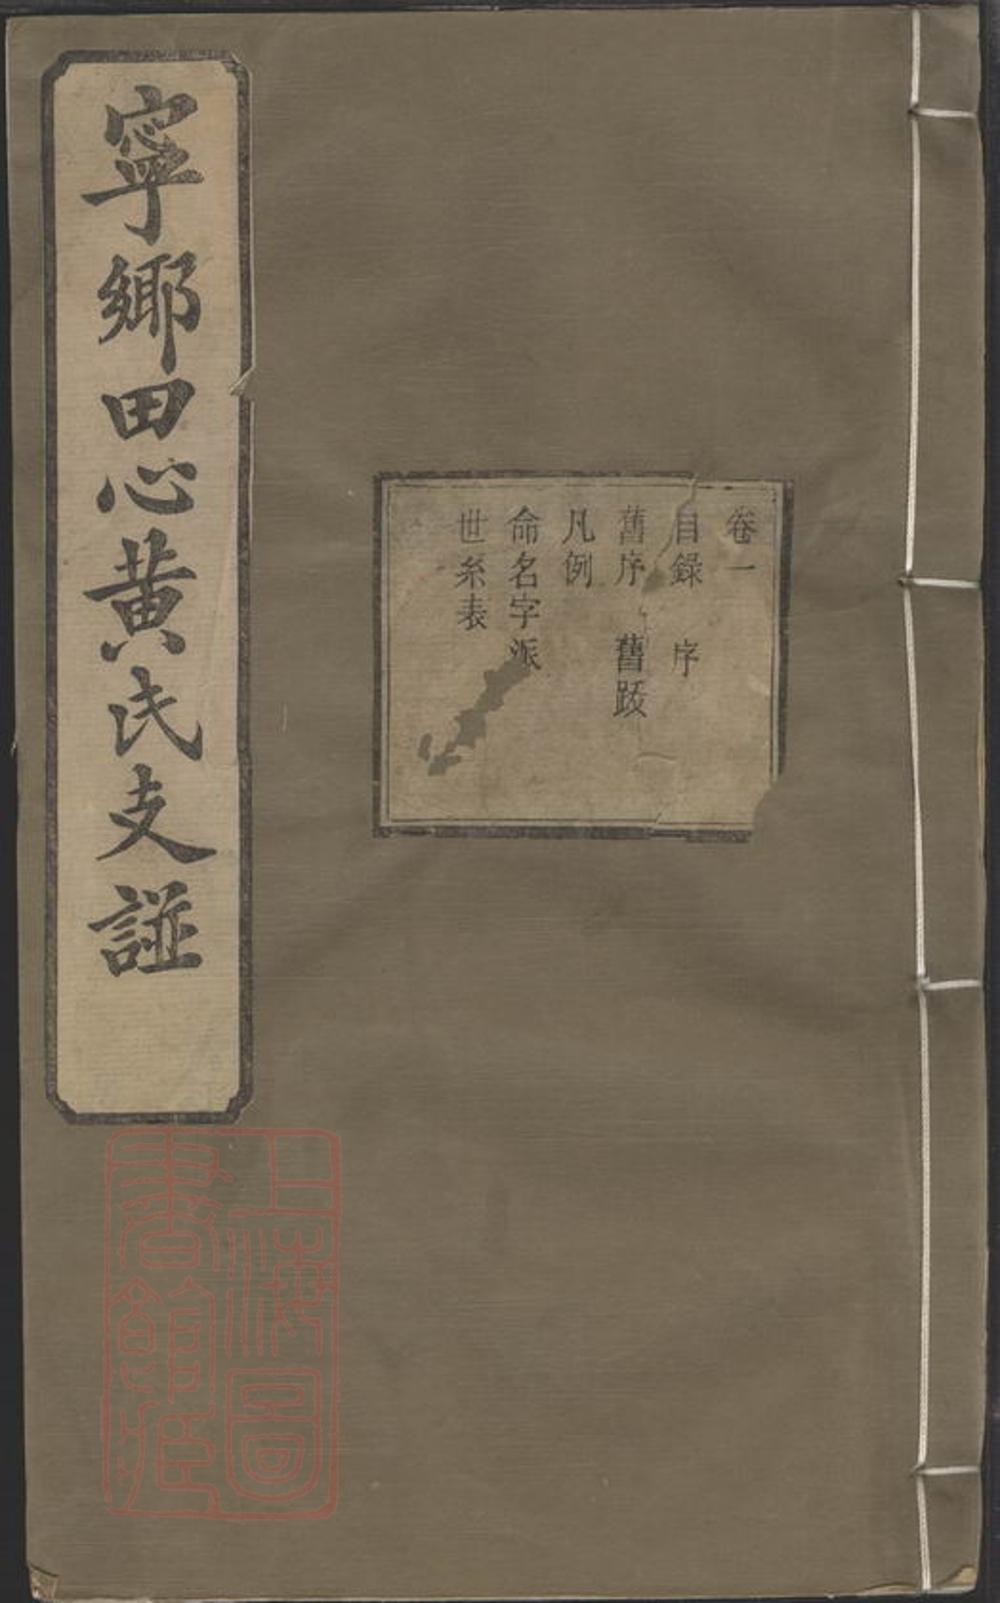 寧鄉田心黄氏支譜
卷一
目録 序
舊序 舊跋
凡例
命名字派
世系表
上海圖書館藏